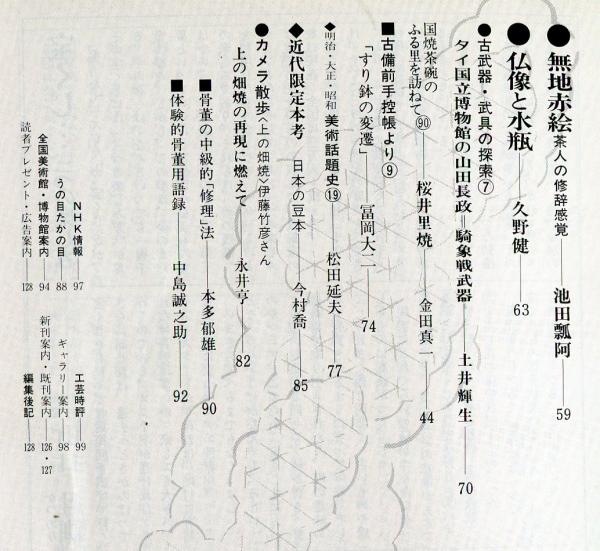 ●無地赤絵 茶人の修辞感覚――池田瓢阿――59
●仏像と水瓶――久野健――63
●古武器・武具の探索⑦
タイ国立博物館の山田長政＝騎象戦武器――土井輝生――70
国焼茶碗の
ふる里を訪ねて⑨⓪ 桜井里焼――金田真一――44
■古備前手控帳より⑨
「すり鉢の変遷」――冨岡大二――74
◆明治・大正・昭和 美術話題史⑲――松田延夫――77
◆近代限定本考 日本の豆本――今村喬――85
●カメラ散歩〈上の畑焼〉伊藤竹彦さん
上の畑焼の再現に燃えて――永井亨――82
■骨董の中級的「修理」法――本多郁雄――90
■体験的骨董用語録――中島誠之助――92
NHK情報――97
工芸時評――99
うの目たかの目――88
ギャラリー案内――98
全国美術館・博物館案内――94
新刊案内・既刊案内――126・127
読者プレゼント・広告案内――128
編集後記――128